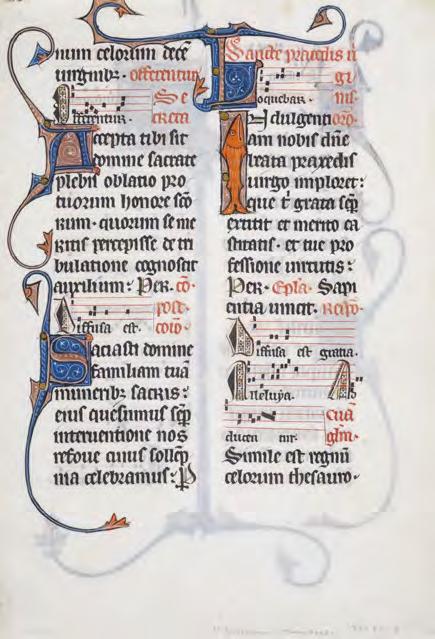 num celorum decē
uirginibꝫ · offerentur
Se
Offerentur. creta
Accepta tibi sit
domine sacrate
plebis oblatio pro
tuorum honore scō
rum · quorum se me
ritis percepisse de tri
bulatione cognoscit
auxilium: Per. cō-
post-
Diffusa est. coīo.
Saciasti domine
familiam tuā
muneribꝫ sacris:
eius quesumus sēp
interuentione nos
refoue cuius sollēp
nia celebramus: P
Sancte praxedis ū
gi
Loquebar. nis-
Indulgenti orō-
am nobis dn̄e
beata praxedis
uirgo imploret:
que t̄ grata sēp
extitit et merito ca
stitatis · et tue pro
fessione uirtutis:
Per · Ep̄la · Sapi
entia uincit. Respō-
Diffusa est gratia.
Alleluya. A
dducen tur. euā
gl̄m.
Simile est regnū
celorum thesauro.